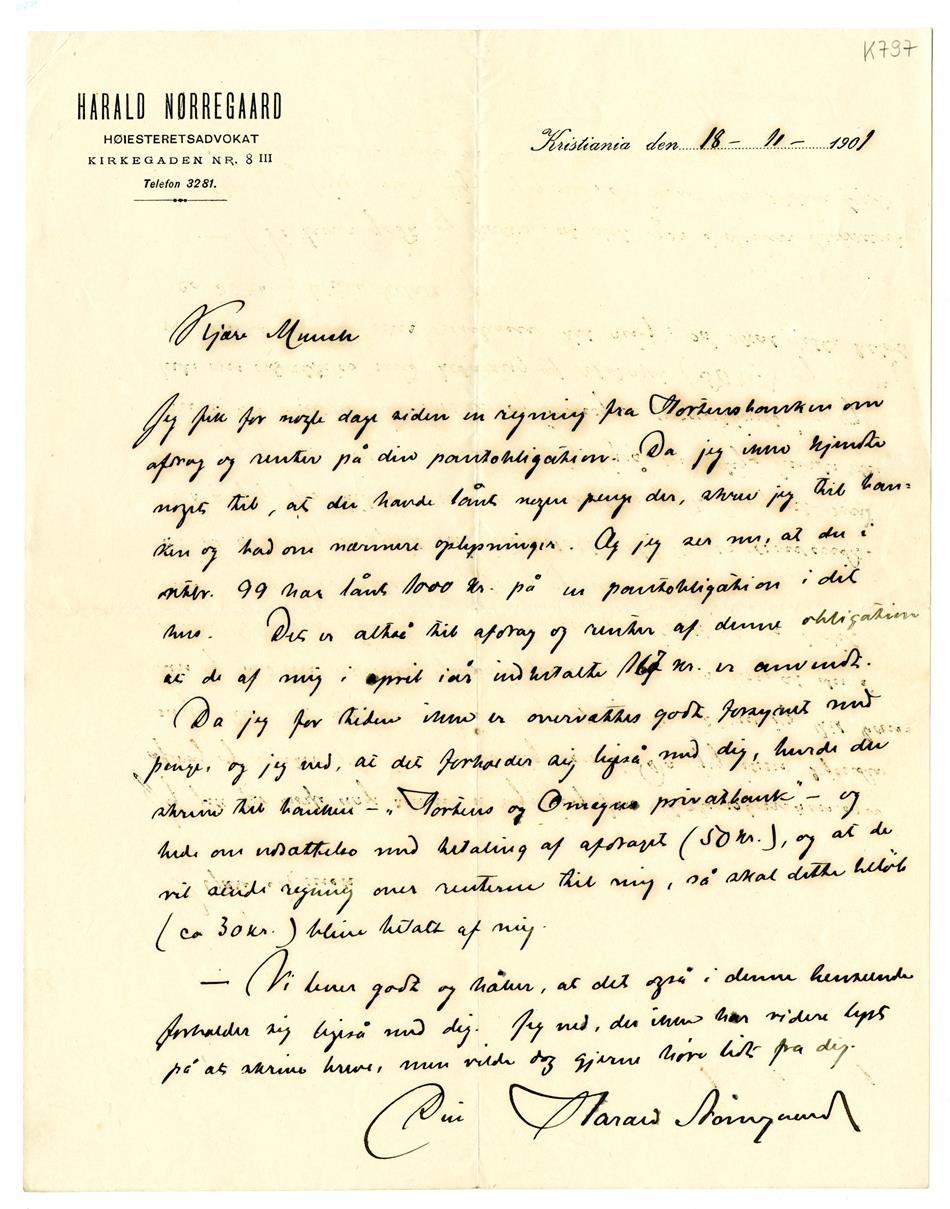 K797
HARALD NØRREGAARD
HØIESTERETSADVOKAT
KIRKEGADEN NR. 8 III
Telefon 3281.
Kristiania den 18 – 11 – 1901
Kjære Munch
Jeg fik for nogle dage siden en regning fra Hortensbanken om
afdrag og renter på din pantobligation. Da jeg ikke kjendte
noget til, at du havde lånt nogen penge der, skrev jeg til ban=
ken og bad om nærmere oplysninger. Og jeg ser nu, at du i
oktbr. 99 har lånt 1000 kr. på en pantobligation i dit
hus. Det er altså til afdrag og renter af denne obligation
at de af mig i april iår indbetalte 167 kr. er anvendt.
Da jeg for tiden ikke er overvættes godt forsynet med
penge, og jeg ved, at det forholder sig ligeså med dig, burde du
skrive til banken – „Hortens og Omegns privatbank" – og
bede om udsættelse med betaling af afdraget (50 kr.), og at de
vil sende regning over renterne til mig, så skal dette beløb
(ca 30 kr.) blive betalt af mig.
— Vi lever godt og håber, at det også i denne henseende
forholder sig ligeså med dig. Jeg ved, du ikke har videre lyst
på at skrive breve, men vilde dog gjerne høre lidt fra dig.
Din Harald Nørregaard